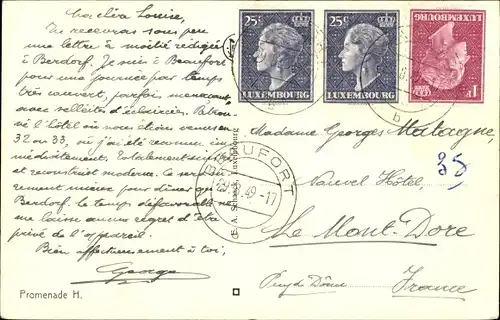 Ma chère Louise,
Tu recevras sous peu
une lettre à moitié rédigée
à Berdorf. Je suis à Beaufort
pour une journée par temps
très couvert, parfois menaçant
avec velléités d'éclaircies.
l'hôtel où nous étions venus en
32 ou 33, où j'ai été reconnu im-
médiatement. Totalement
et reconstruit moderne. Je
rement mieux pour dîner qu'à
Berdorf. Le temps défavorable ne
me laisse aucun regret d'être
privé de l'appareil.
Bien affectueusement à toi,
George
Promenade H.
E. A. Schaack, Luxembourg
25c
LUXEMBOURG
25c
LUXEMBOURG
1F
LUXEMBOURG
BEAUFORT
49-17
b
Madame Georges Matagne,
35
Nouvel Hôtel
Le Mont-Dore
Puy de Dôme
France